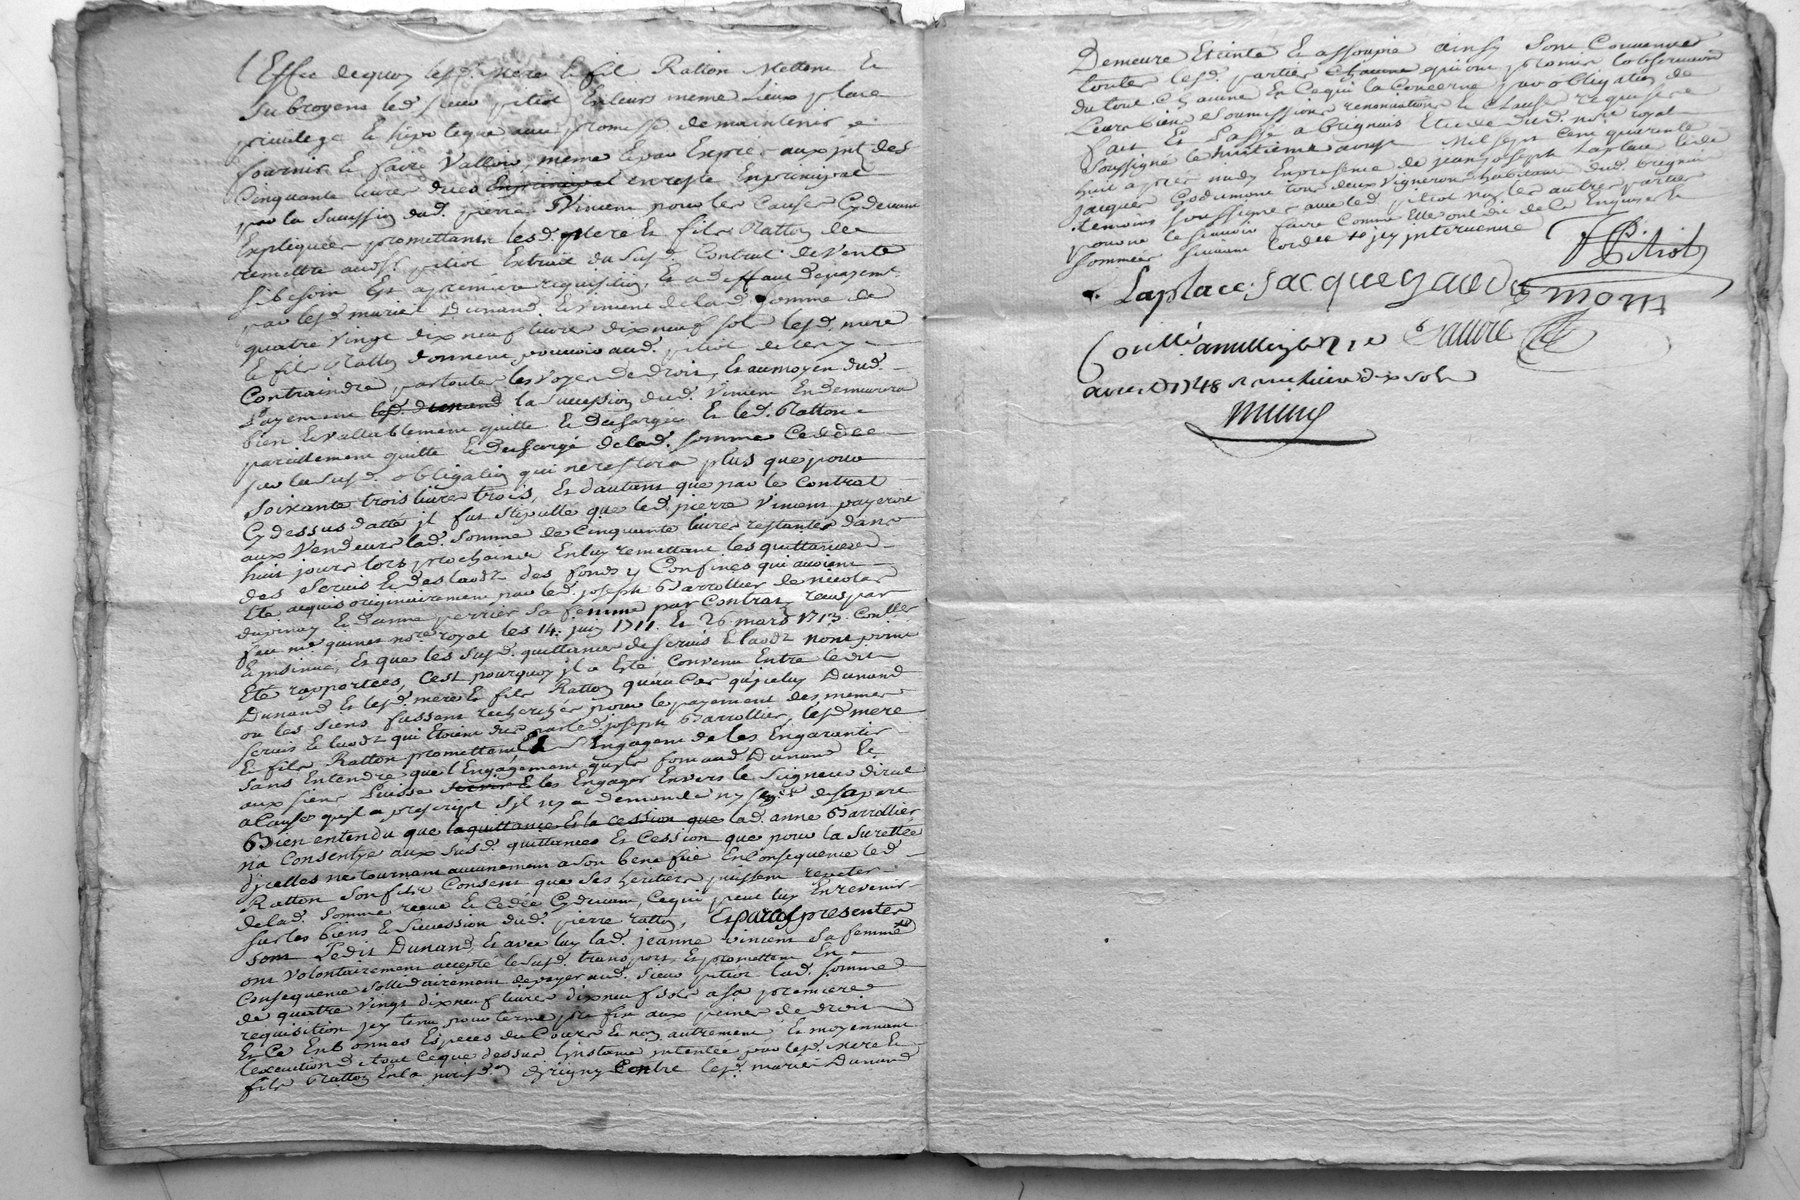 l Effet dequoy lesd. mere & fils Ratton Mettent Et
Subrogent led. sieur pitiot En leurs meme Lieux place
privilege & hipoteque avec promesse de maintenir
fournir & faire Valloir, meme Et par Exprès aux
Cinquante livres dues en reste En principal
par la Succession dud. pierre Vincent pour les Causes Cy devant
Expliquées promettants lesd. mere & fils Ratton de
remettre aud. sr. pitiot Extrait du susd. Contrat de Vente
si besoin Est a premiere requisition, Et a deffaut de payement
par lesd. mariés Dunand & Vincent de lad. somme de
quatre Vingt dix neuf livres dix neuf sols lesd. mere
& fils Ratton donnent pouvoir aud. pitiot de les y
Contraindre par toutes les voyes de droit, Et au moyen dud.
payement la succession dud. Vincent En demeurera
bien & vallablement quitte & dechargée Et led. Ratton
pareillement quitte & dechargé de lad. somme Cedée
sur la susd. obligation qui ne restera plus que pour
soixante trois livres trois, Et d'autant que par le Contrat
Cy dessus datté il fut stipullé que led. pierre Vincent payeroit
aux Vendeurs lad. somme de Cinquante livres restantes dans
huit jours lors prochains En luy remettant les quittances
des servis & des laods des fonds y Confinés qui avoient
Eté acquis originairement par led. joseph Barrollier de nicolas
dupinay & danne perrier sa femme par Contrat reçus par
feu me guinet notre royal les 14 juin 1711 Et 26 mars 1713 Conllés
& insinué, Et que les susd. quittances de servis & laods nont point
Eté raportées, C'est pourquoy il a Eté Convenu Entre ledit
Dunand Et lesd. mere & fils Ratton qu'au Cas que led. Dunand
ou les siens fussent recherchés pour le payement des memes
servis & laods qui Etoient dus par led. joseph Barrollier, lesd. mere
& fils Ratton promettent & S'Engagent de les En garantir
sans Entendre que l'Engagement qu'ils font aud. Dunand &
aux siens puisse les Engager Envers le Seigneur direct
a Cause qu'il a prescript s'il ny a demande ny de sa part
Bien entendu que la quittance Et la cession que lad. anne Barrollier
na Consentye aux susd. quittances Et Cession que pour la suretté
d'icelles ne tournant aucunement a son benefice En Consequence led.
Ratton son fils Consent que ses heritiers puissent repeter
de lad. somme reçue & Cedée Cydevant, Ce qui peut luy En revenir
sur les biens & succession dud. pierre ratton, Et par ces presentes
sont Ledit Dunand, Et avec luy lad. jeanne vincent sa femme
ont volontairement accepté le susd. transport, Et promettent En
Consequence sollidairement de payer aud. sieur pitiot lad. somme
de quatre Vingt dix neuf livres dix neuf sols a sa premiere
requisition jcy tenu pour terme prefix aux peines de droit
Et Ce En bonnes Especes de Cours & non autrement & moyennant
l'execution de tout Ceque dessus l'instance intentée par lesd. mere &
fils Ratton En la jurisd.on d'irigny Contre lesd. mariés Dunand
Demeure Eteinte & assoupie ainsy Sont Convenues
toutes lesd. parties qui ont promis l'observation
du tout Chacune En Cequi la Concerne par obligation de
Leurs biens soumissions renonciations & Clauses requises
fait Et Passé a brignais Etude dud. notre royal
Soussigné le huitieme avril Mil sept Cent quarante
huit apres midy En presence de jean joseph Laplace & de
jacques Godumont tous deux Vignerons habitant dud. brignais
temoins soussignes avec led. pitiot non les autres parties
pour ne le sçavoir faire Comme Elles ont dit de Ce Enquises &
sommées suivant lordce
Pitiot
Laplace. Jacques
Conllé a le
avril 1748